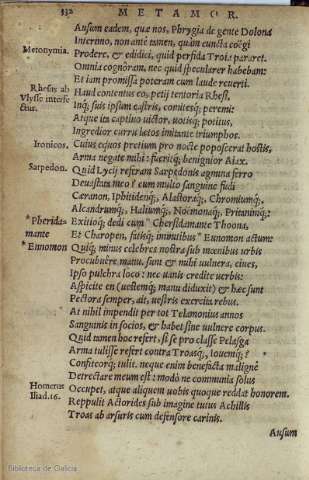 332 METAMOR.
Ausum eadem, quæ nos, Phrygia de gente Dolona
Interimo, non ante tamen, quàm cuncta coëgi
Metonymia. Prodere, & edidici, quid perfida Troia pararet.
Omnia cognôram, nec quod specularer habebam:
Et iam promissa poteram cum laude reuerti.
Rhesus ab Haud contentus eo, petij tentoria Rhesi,
Vlysse interfe Inq; suis ipsum castris, comitesq; peremi:
ctus. Atque ita captiuo uictor, uotisq; potitus,
Ingredior curru lætos imitante triumphos.
Ironicos. Cuius equos pretium pro nocte poposcerat hostis,
Arma negate mihi: fueritq; benignior Aiax.
Sarpedon. Quid Lycij referam Sarpedonis agmina ferro
Deuastata meo? cum multo sanguine fudi
Cæranon, Iphitidenq;, Alastoraq;, Chromiumq;,
Alcandrumq;, Haliumq;, Noëmonaq;, Prytaninq;:
*Pherida- Exitioq; dedi cum * Chersidamante Thoona,
mante Et Charopen, fatisq; immitibus * Eunomon actum:
*Ennomon Quiq; minus celebres nostra sub mœnibus urbis
Procubuêre manu. sunt & mihi uulnera, ciues,
Ipso pulchra loco: nec uanis credite uerbis:
Aspicite en (uestemq; manu diduxit) & hæc sunt
Pectora semper, ait, uestris exercita rebus.
At nihil impendit per tot Telamonius annos
Sanguinis in socios, & habet sine uulnere corpus.
Quid tamen hoc refert, si se pro classe Pelasga
Arma tulisse refert contra Troasq;, Iouemq;?
Confiteorq; tulit. neque enim benefacta malignè
Detrectare meum est: modò ne communia solus
Homerus Occupet, atque aliquem uobis quoque reddat honorem.
Iliad.16. Reppulit Actorides sub imagine tutus Achillis
Troas ab arsuris cum defensore carinis.
Ausum
Biblioteca de Galicia